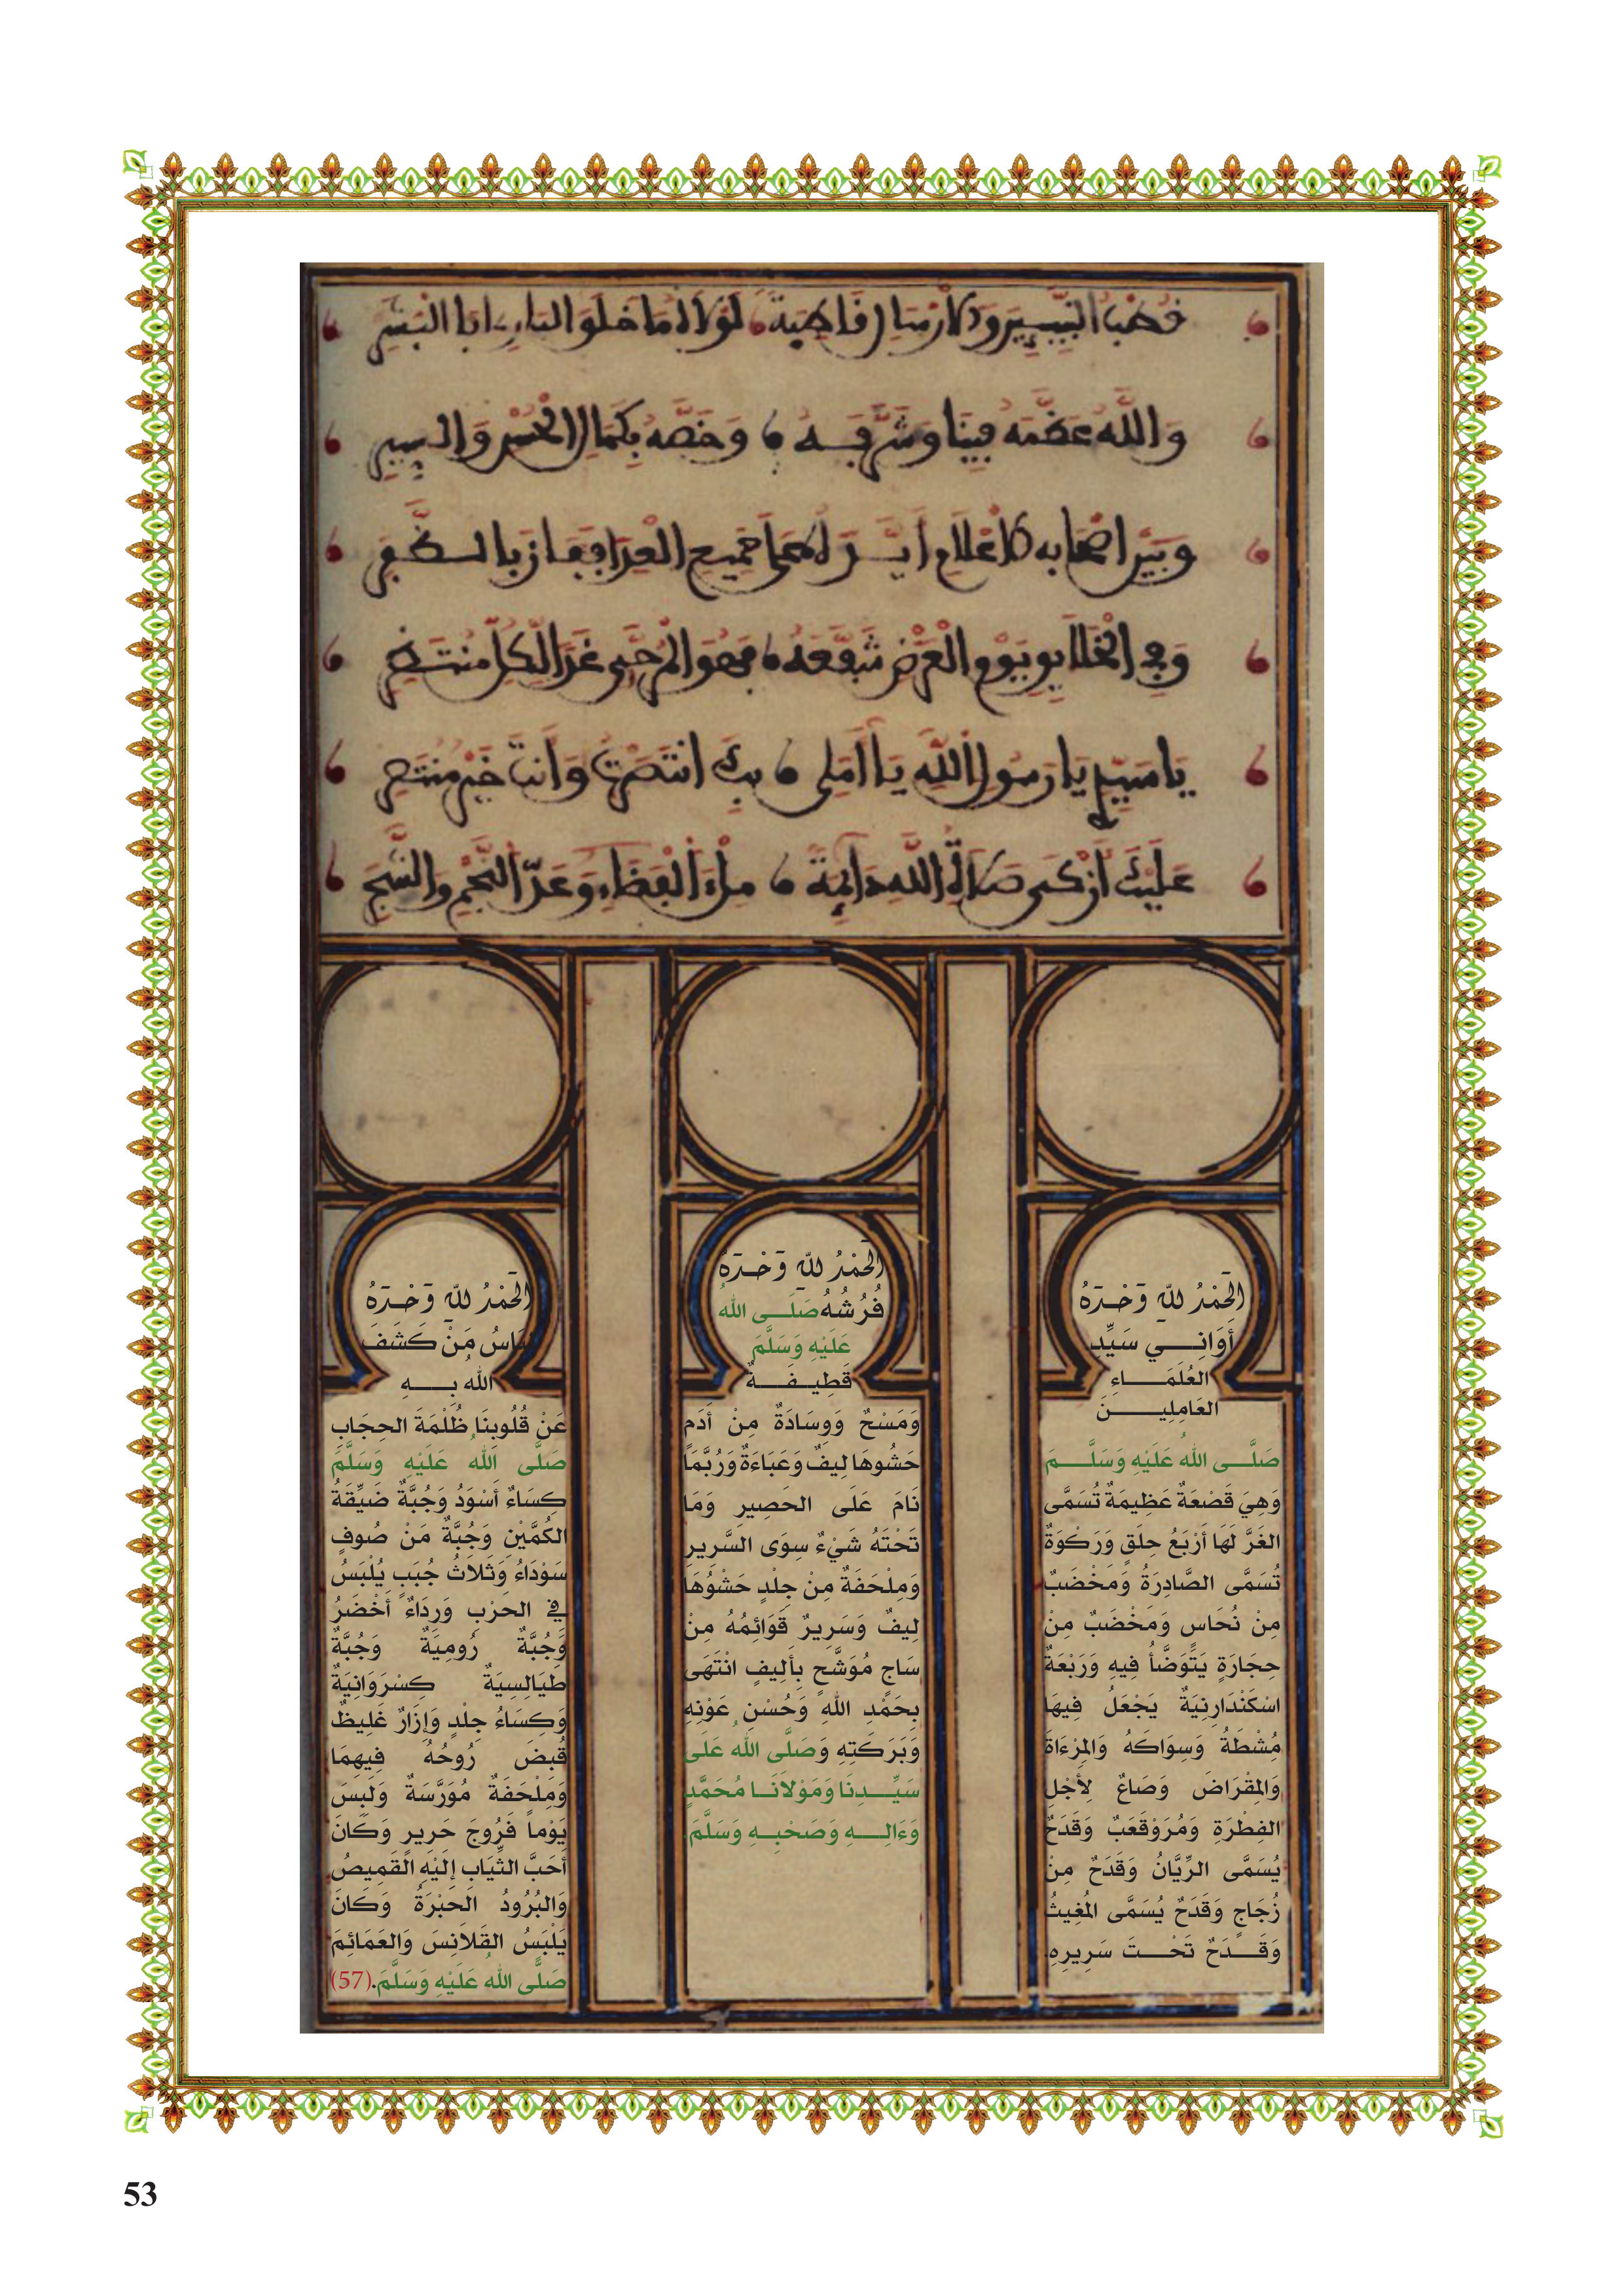 وَاللَّهُ عَظَّمَهُ فِينَا وَشَرَّفَهُ وَخَصَّهُ بِكَمَالِ الْحُسْنِ وَالسِّيَرِ
وَبَيْنَ أَصْحَابِهِ كَالْأَعْلَامِ
وَفِي الْخَلَائِقِ يَوْمَ الْعَرْضِ شَفَّعَهُ فَهُوَ الْمُرَجَّى
يَا سَيِّدِي يَا رَسُولَ اللَّهِ يَا أَمَلِي بِكَ انْتَصَرْتُ وَأَنْتَ خَيْرُ مُنْتَصَرِ
عَلَيْكَ أَزْكَى صَلَاةُ اللَّهِ دَائِمَةً مِلْءَ الْفَضَاءِ وَعَدَّ النَّجْمِ وَالشَّجَرِ
الحَمْدُ للهِ وَحْدَهُ
أَوَانِي سَيِّدِ
العُلَمَاءِ
العَامِلِينَ
صَلَّى اللهُ عَلَيْهِ وَسَلَّمَ
وَهِيَ قَصْعَةٌ عَظِيمَةٌ تُسَمَّى
الغَرَّ لَهَا أَرْبَعُ حِلَقٍ وَرَكْوَةٌ
تُسَمَّى الصَّادِرَةُ وَمَخْضَبٌ
مِنْ نُحَاسٍ وَمَخْضَبٌ مِنْ
حِجَارَةٍ يَتَوَضَّأُ فِيهِ وَرَبْعَةٌ
اسْكَنْدَارِنِيَةٌ يَجْعَلُ فِيهَا
مُشْطَهُ وَسِوَاكَهُ وَالمِرْءَاةَ
وَالمِقْرَاضَ وَصَاعٌ لِأَجْلِ
الفِطْرَةِ وَمُرَوْقَعَبٌ وَقَدَحٌ
يُسَمَّى الرِّيَّانُ وَقَدَحٌ مِنْ
زُجَاجٍ وَقَدَحٌ يُسَمَّى المُغِيثُ
وَقَدَحٌ تَحْتَ سَرِيرِهِ
الحَمْدُ للهِ وَحْدَهُ
فُرُشُهُ صَلَّى اللهُ
عَلَيْهِ وَسَلَّمَ
قَطِيفَةٌ
وَمَسْحٌ وَوِسَادَةٌ مِنْ أَدَمٍ
حَشْوُهَا لِيفٌ وَعَبَاءَةٌ وَرُبَّمَا
نَامَ عَلَى الحَصِيرِ وَمَا
تَحْتَهُ شَيْءٌ سِوَى السَّرِيرِ
وَمِلْحَفَةٌ مِنْ جِلْدٍ حَشْوُهَا
لِيفٌ وَسَرِيرٌ قَوَائِمُهُ مِنْ
سَاجٍ مُوَشَّحٍ بِأَلِيفٍ انْتَهَى
بِحَمْدِ اللهِ وَحُسْنِ عَوْنِهِ
وَبَرَكَتِهِ وَصَلَّى اللهُ عَلَى
سَيِّدِنَا وَمَوْلَانَا مُحَمَّدٍ
وَءَالِهِ وَصَحْبِهِ وَسَلَّمَ.
الحَمْدُ للهِ وَحْدَهُ
مَنْ كَشَفَ
اللهُ بِهِ
عَنْ قُلُوبِنَا ظُلْمَةَ الحِجَابِ
صَلَّى اللهُ عَلَيْهِ وَسَلَّمَ
كِسَاءٌ أَسْوَدُ وَجُبَّةٌ ضَيِّقَةُ
الكُمَّيْنِ وَجُبَّةٌ مَنْ صُوفٍ
سَوْدَاءُ وَثَلَاثُ جُبَبٍ يُلْبَسُ
فِي الحَرْبِ وَرِدَاءٌ أَخْضَرُ
وَجُبَّةٌ رُومِيَةٌ وَجُبَّةٌ
طَيَالِسِيَةٌ كِسْرَوَانِيَةٌ
وَكِسَاءُ جِلْدٍ وَإِزَارٌ غَلِيظٌ
قُبِضَ رُوحُهُ فِيهِمَا
وَمِلْحَفَةٌ مُوَرَّسَةٌ وَلَبِسَ
يَوْماً فَرُّوجَ حَرِيرٍ وَكَانَ
أَحَبَّ الثِّيَابِ إِلَيْهِ القَمِيصُ
وَالبُرُودُ الحَبْرَةُ وَكَانَ
يَلْبَسُ القَلَانِسَ وَالعَمَائِمَ
صَلَّى اللهُ عَلَيْهِ وَسَلَّمَ.(57)
53